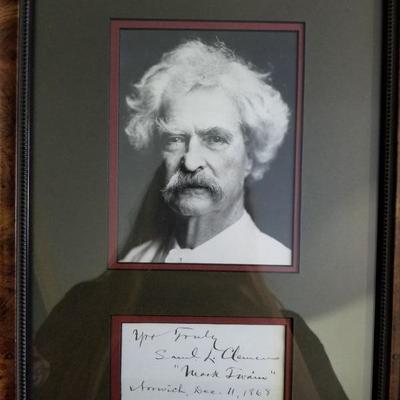 Yrs Truly
Saml L. Clemens
"Mark Twain"
Norwich, Dec. 11, 1868